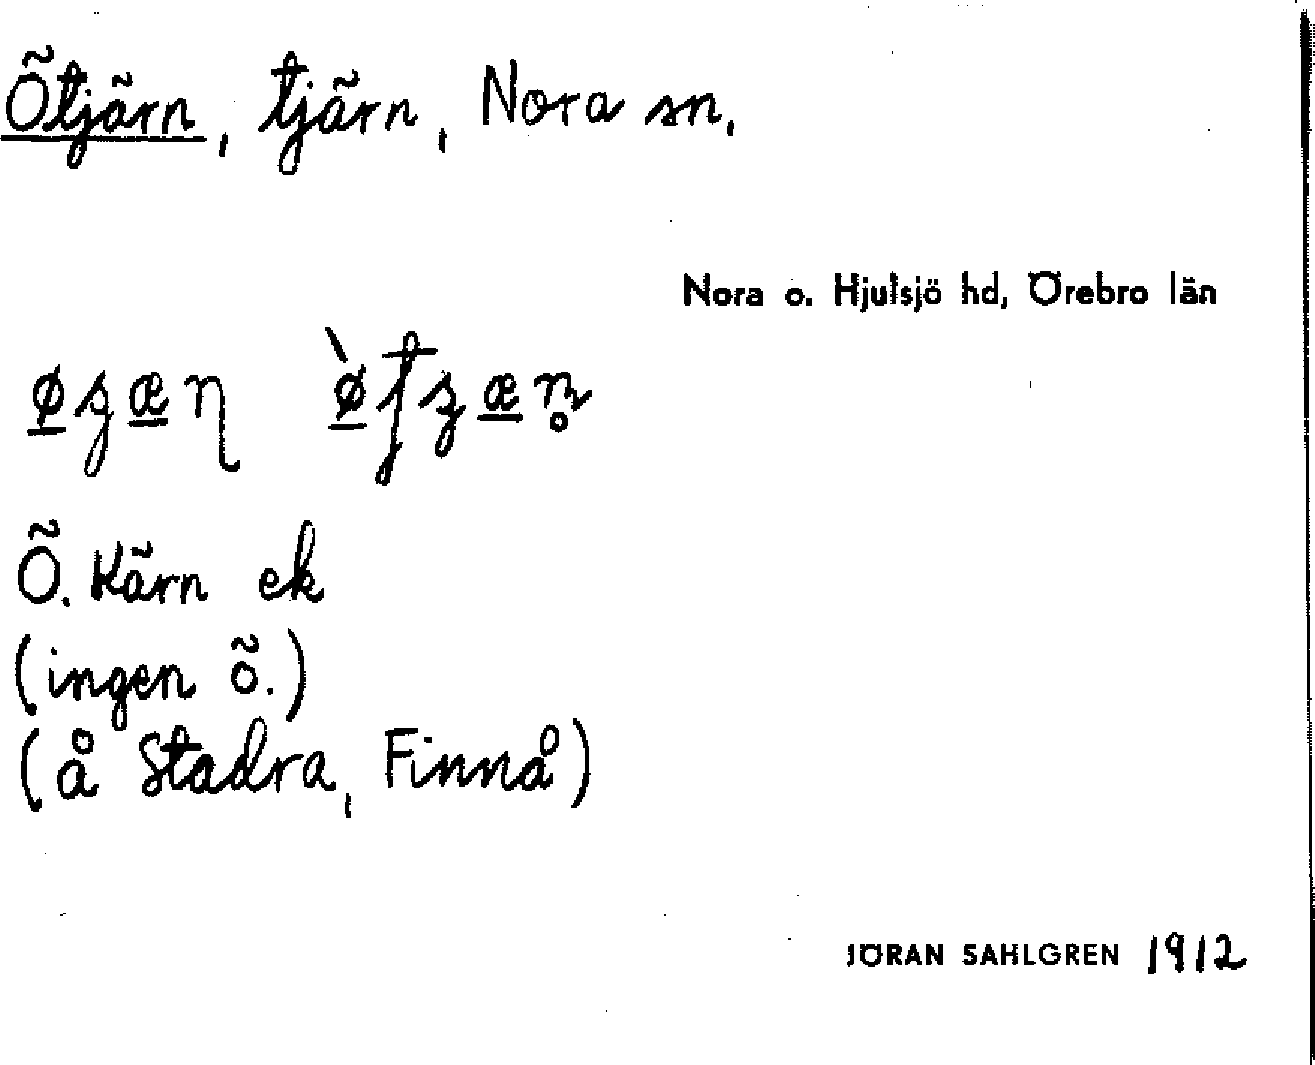 Õtjãrn, tjãrn, Nora sn.
Nora o. Hjulsjö hd, Örebro län
Õ. Kãrn ek
(ingen õ.)
(å Stadra, Finnå)
JÖRAN SAHLGREN 1912